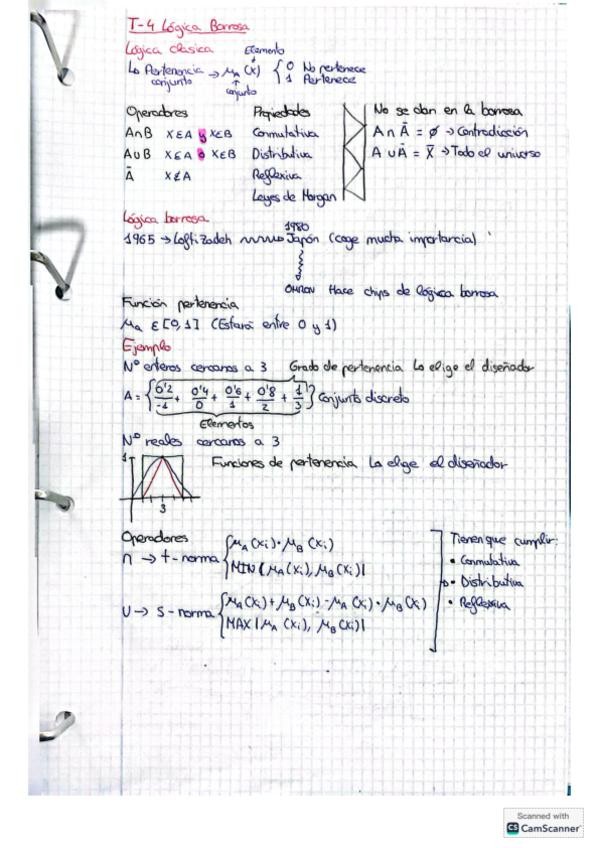 T-4 Lógica Borrosa
Lógica clasica
Elemento
↳ Pertenencia → μA (x) { 0 No pertenece
1 Pertenece
conjunto
conjunto
Operadores
A∩B X∈A y X∈B
A∪B X∈A o X∈B
Ā X∉A
Propiedades
Conmutativa
Distributiva
Reflexiva
Leyes de Morgan
No se dan en la borrosa
A ∩ Ā = ∅ → Contradicción
A ∪ Ā = X → Todo el universo
Lógica borrosa
1980
1965 → Lofti Zadeh Japón (coge mucha importancia)
OMRON Hace chips de lógica borrosa
Función pertenencia
μa ∈ [0,1] (Estará entre 0 y 1)
Ejemplo
Nº enteros cercanos a 3 Grado de pertenencia Lo elige el diseñador
A = { 0'2/-1 + 0'4/0 + 0'6/1 + 0'8/2 + 1/3 } Conjunto discreto
Elementos
Nº reales cercanos a 3
1
3
Funciones de pertenencia La elige el diseñador
Operadores
∩ → t-norma { μA (xi) · μB (xi)
MIN | μA (xi), μB (xi) |
∪ → S-norma { μA (xi) + μB (xi) - μA (xi) · μB (xi)
MAX | μA (xi), μB (xi) |
Tienen que cumplir:
• Conmutativa
• Distributiva
• Reflexiva
Scanned with
CS CamScanner